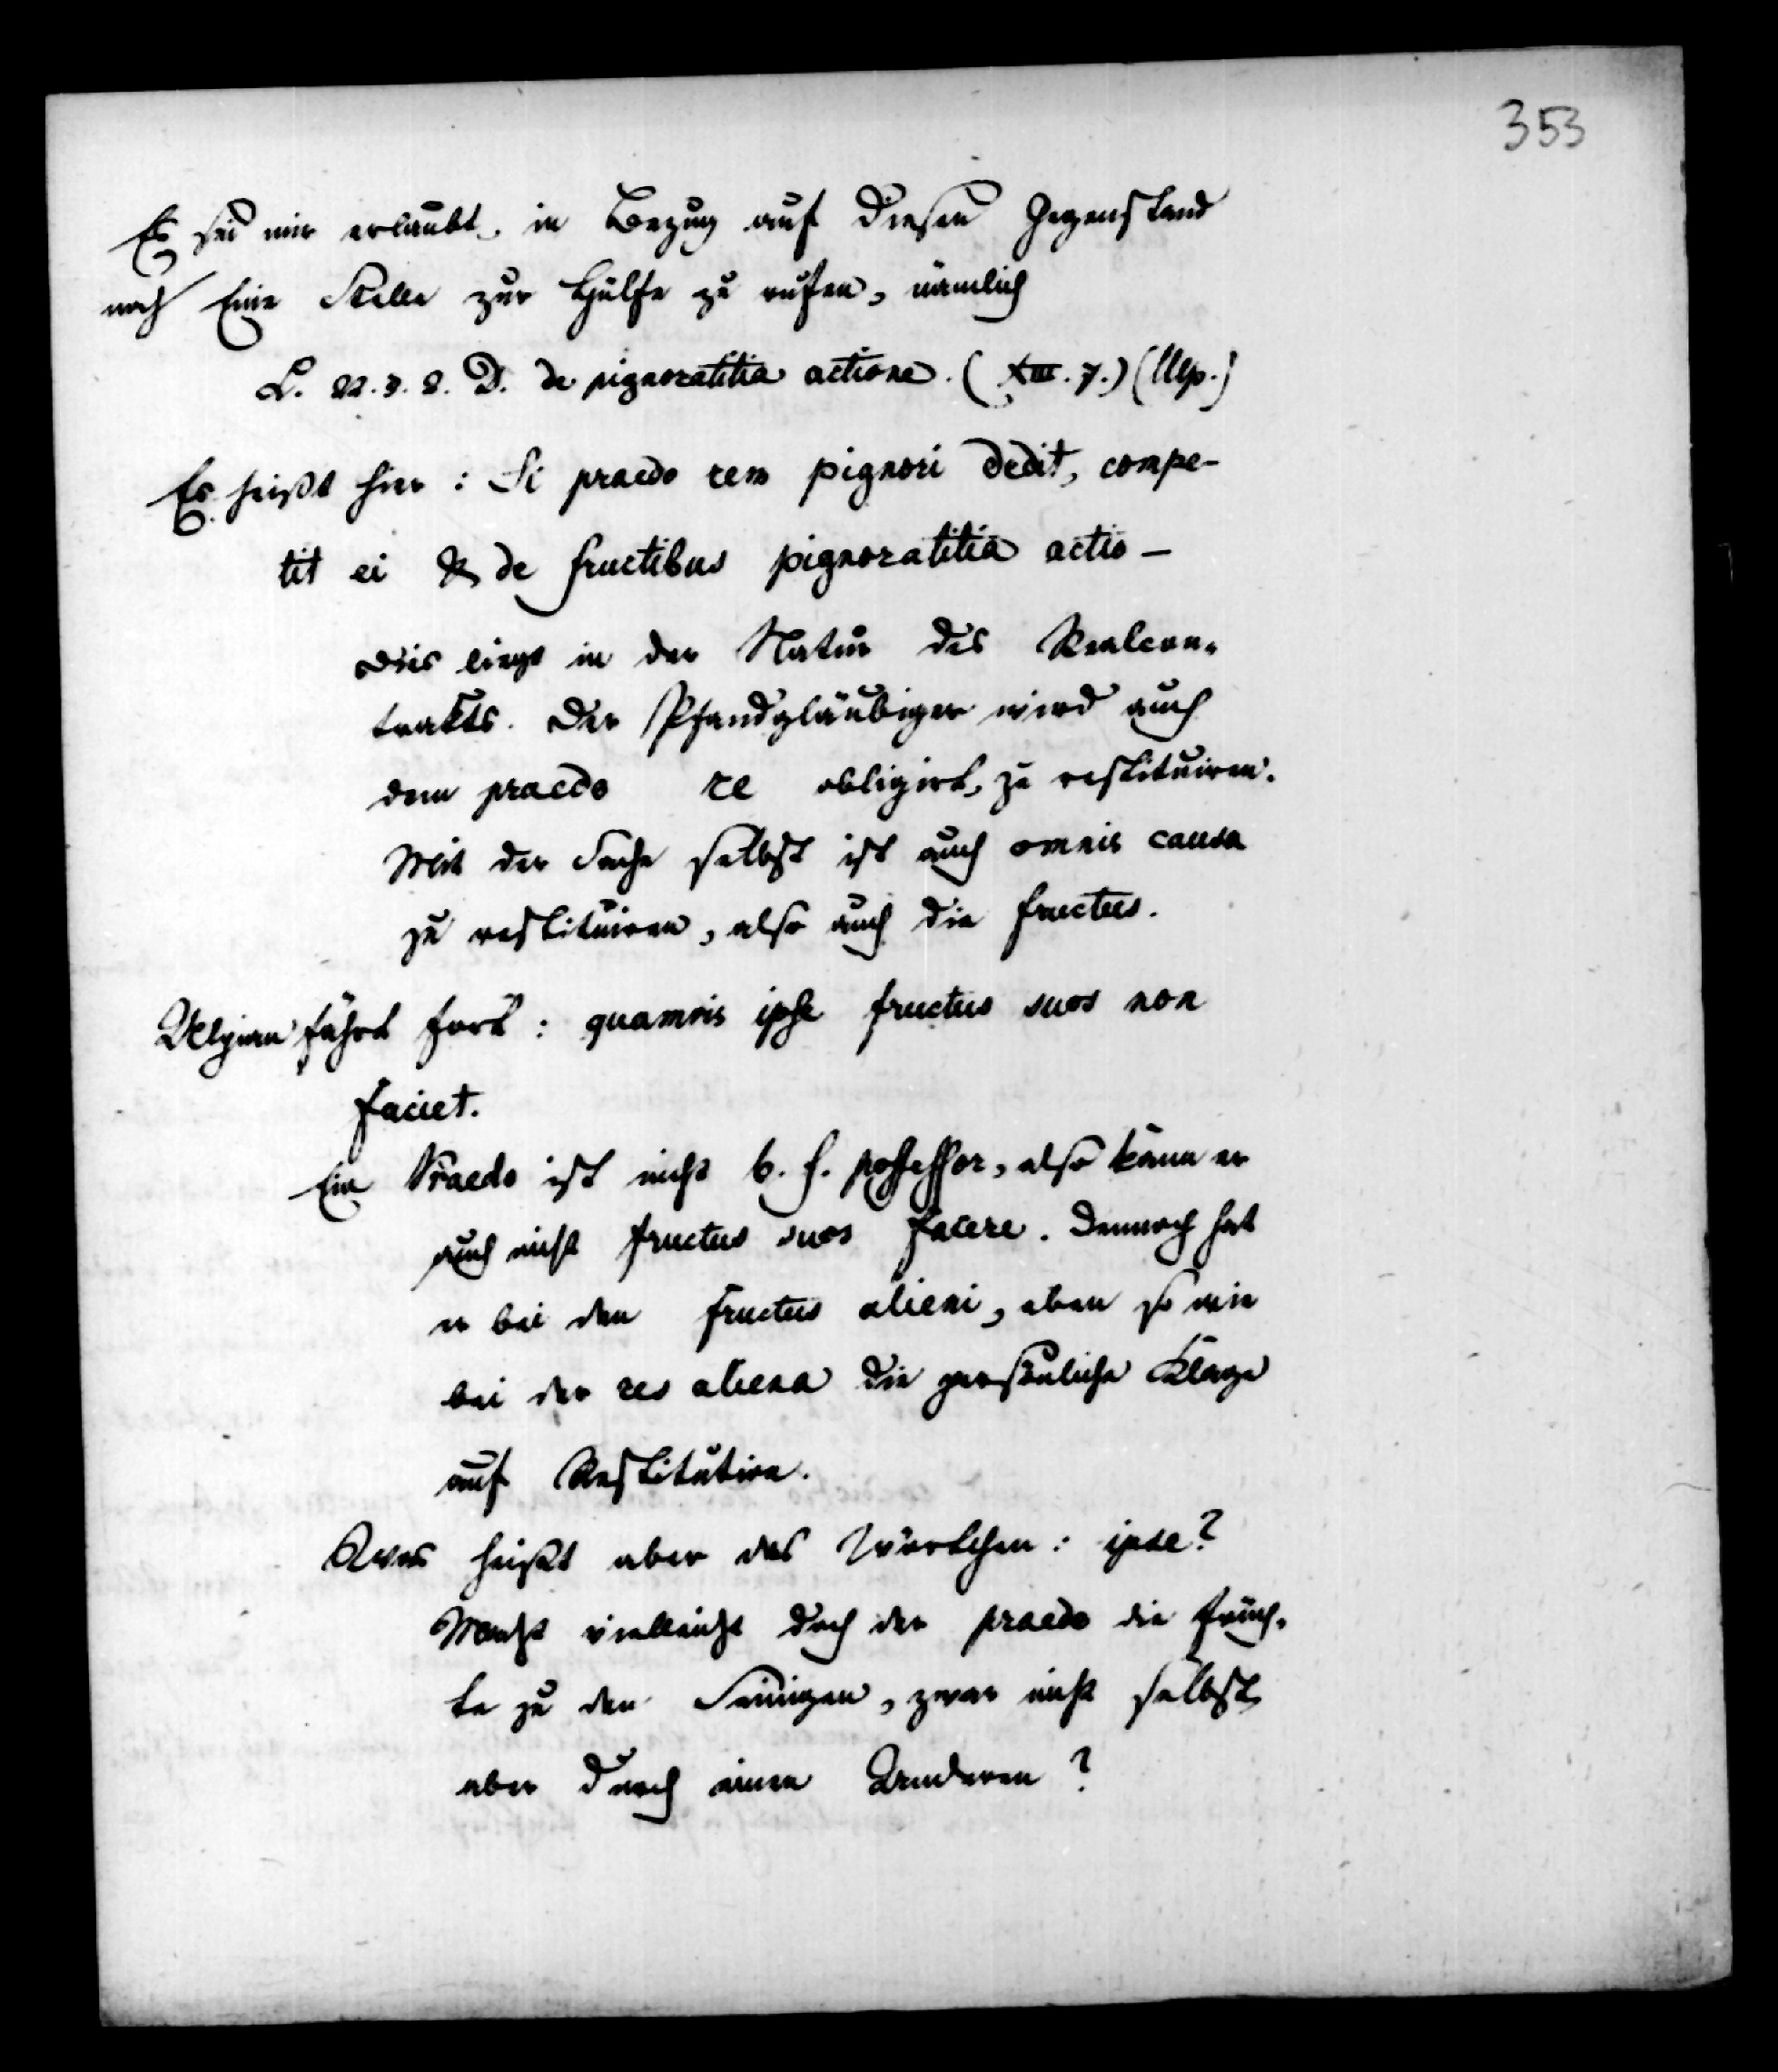 353
Es sei mir erlaubt, in Bezug auf diesen Gegenstand
noch Eine Stelle zur Hülfe zu rufen, nämlich
L. 22. §. 2. D. de pignoratitia actione. (XIII. 7.) (Ulp.)
Es heißt hier: Si praedo rem pignori dedit, compe-
tit ei & de fructibus pignoratitia actio —
Dies liegt in der Natur des Realcon-
trakts. Der Pfandgläubiger wird auch
dem praedo re obligirt, zu restituiren.
Mit der Sache selbst ist auch omnis causa
zu restituiren, also auch die fructus.
Ulpian fährt fort: quamvis ipse fructus suos non
faciet.
Ein Praedo ist nicht b. f. possessor, also kann er
auch nicht fructus suos facere. Dennoch hat
er bei den fructus alieni, eben so wie
bei der res aliena die persönliche Klage
auf Restitution.
Was heißt aber das Wörtchen: ipse?
Macht vielleicht doch der praedo die Früch-
te zu den Seinigen, zwar nicht selbst,
aber durch einen Anderen?